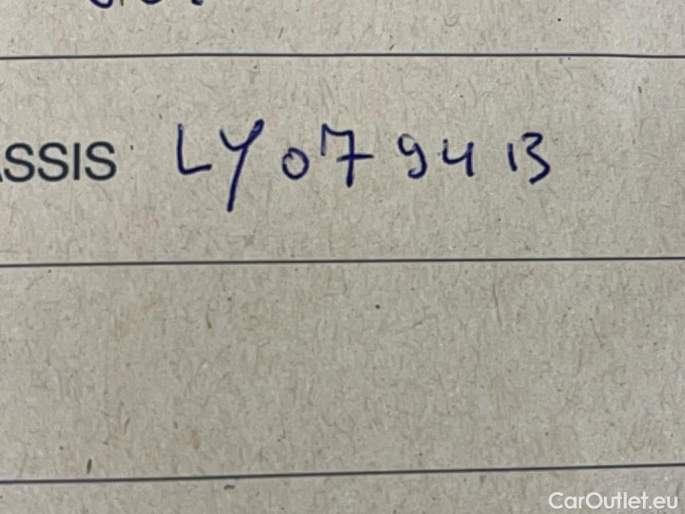 ASSIS LY079413
CarOutlet.eu